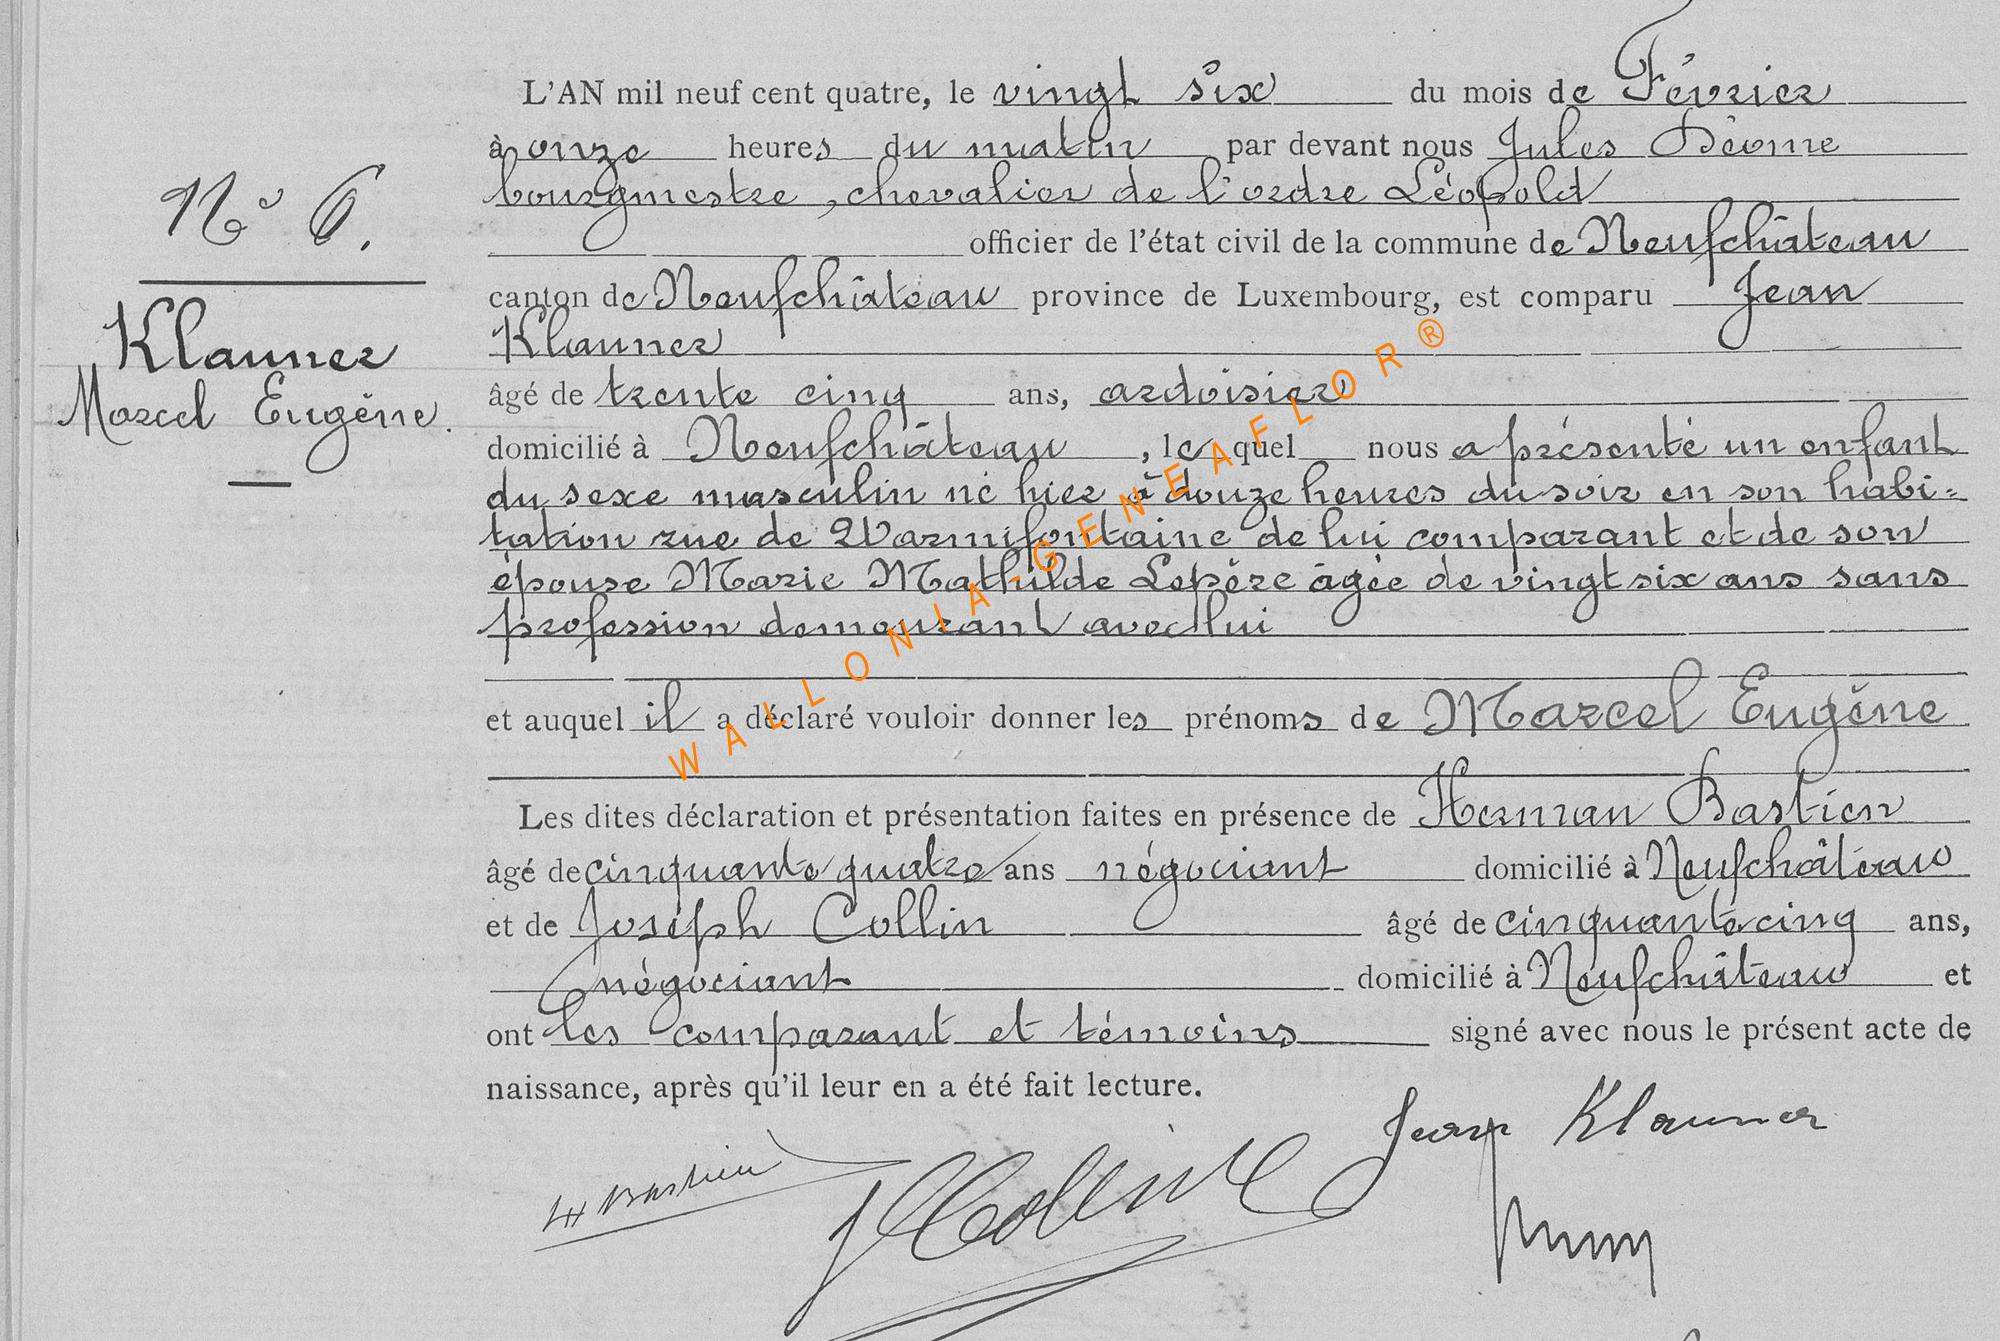 L'AN mil neuf cent quatre, le vingt six du mois de Février
à onze heures du matin par devant nous Jules
bourgmestre, chevalier de l'ordre Léopold
officier de l'état civil de la commune de Neufchâteau
canton de Neufchâteau province de Luxembourg, est comparu Jean
Klauner
âgé de trente cinq ans, ardoisier
domicilié à Neufchâteau, le quel nous a présenté un enfant
du sexe masculin né hier à douze heures du soir en son habi=
tation rue de Warmifontaine de lui comparant et de son
épouse Marie Mathilde Lepère âgée de vingt six ans sans
profession demeurant avec lui
et auquel il a déclaré vouloir donner les prénoms de Marcel Eugène
Les dites déclaration et présentation faites en présence de Herman Bastien
âgé de cinquante quatre ans négociant domicilié à Neufchâteau
et de Joseph Collin âgé de cinquante cinq ans,
négociant domicilié à Neufchâteau et
ont les comparant et témoins signé avec nous le présent acte de
naissance, après qu'il leur en a été fait lecture.
N° 6.
Klauner
Marcel Eugène.
WALLONIA-GENEAFLOR®
Jean Klauner
H Bastien
J Collin